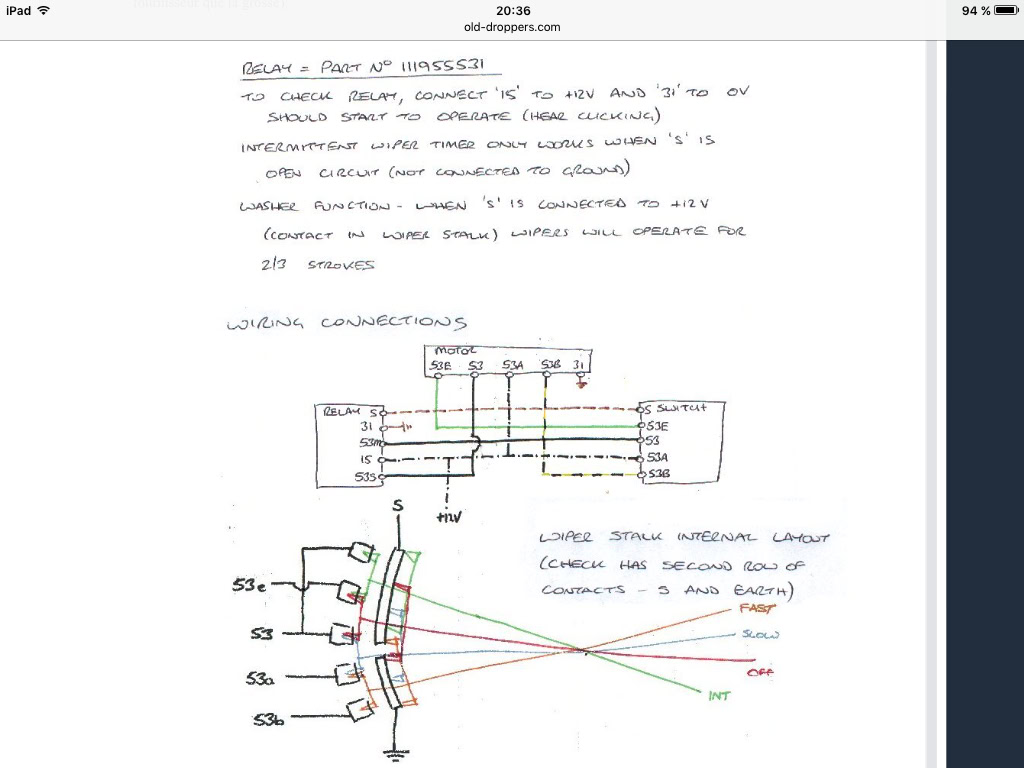 iPad 20:36 94 %
old-droppers.com
RELAY = PART Nº 111955531
TO CHECK RELAY, CONNECT '15' TO +12V AND '31' TO 0V
SHOULD START TO OPERATE (HEAR CLICKING)
INTERMITTENT WIPER TIMER ONLY WORKS WHEN 'S' IS
OPEN CIRCUIT (NOT CONNECTED TO GROUND)
WASHER FUNCTION - WHEN 'S' IS CONNECTED TO +12V
(CONTACT IN WIPER STALK) WIPERS WILL OPERATE FOR
2/3 STROKES
WIRING CONNECTIONS
MOTOR
53E 53 53A 53B 31
RELAY S
31
53M
15
53S
S SWITCH
53E
53
53A
53B
+12V
S
WIPER STALK INTERNAL LAYOUT
(CHECK HAS SECOND ROW OF
CONTACTS - S AND EARTH)
53e
53
53a
53b
FAST
SLOW
OFF
INT